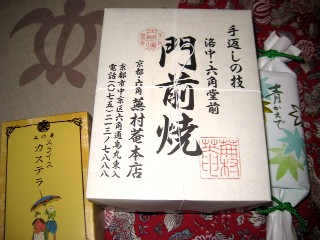 手返しの技
洛中・六角堂前
門前焼
京都・六角 蕪村菴本店
京都市中京区六角通烏丸東入
電話(〇七五)二一三・七八八八
スライス
カステラ
青かえで